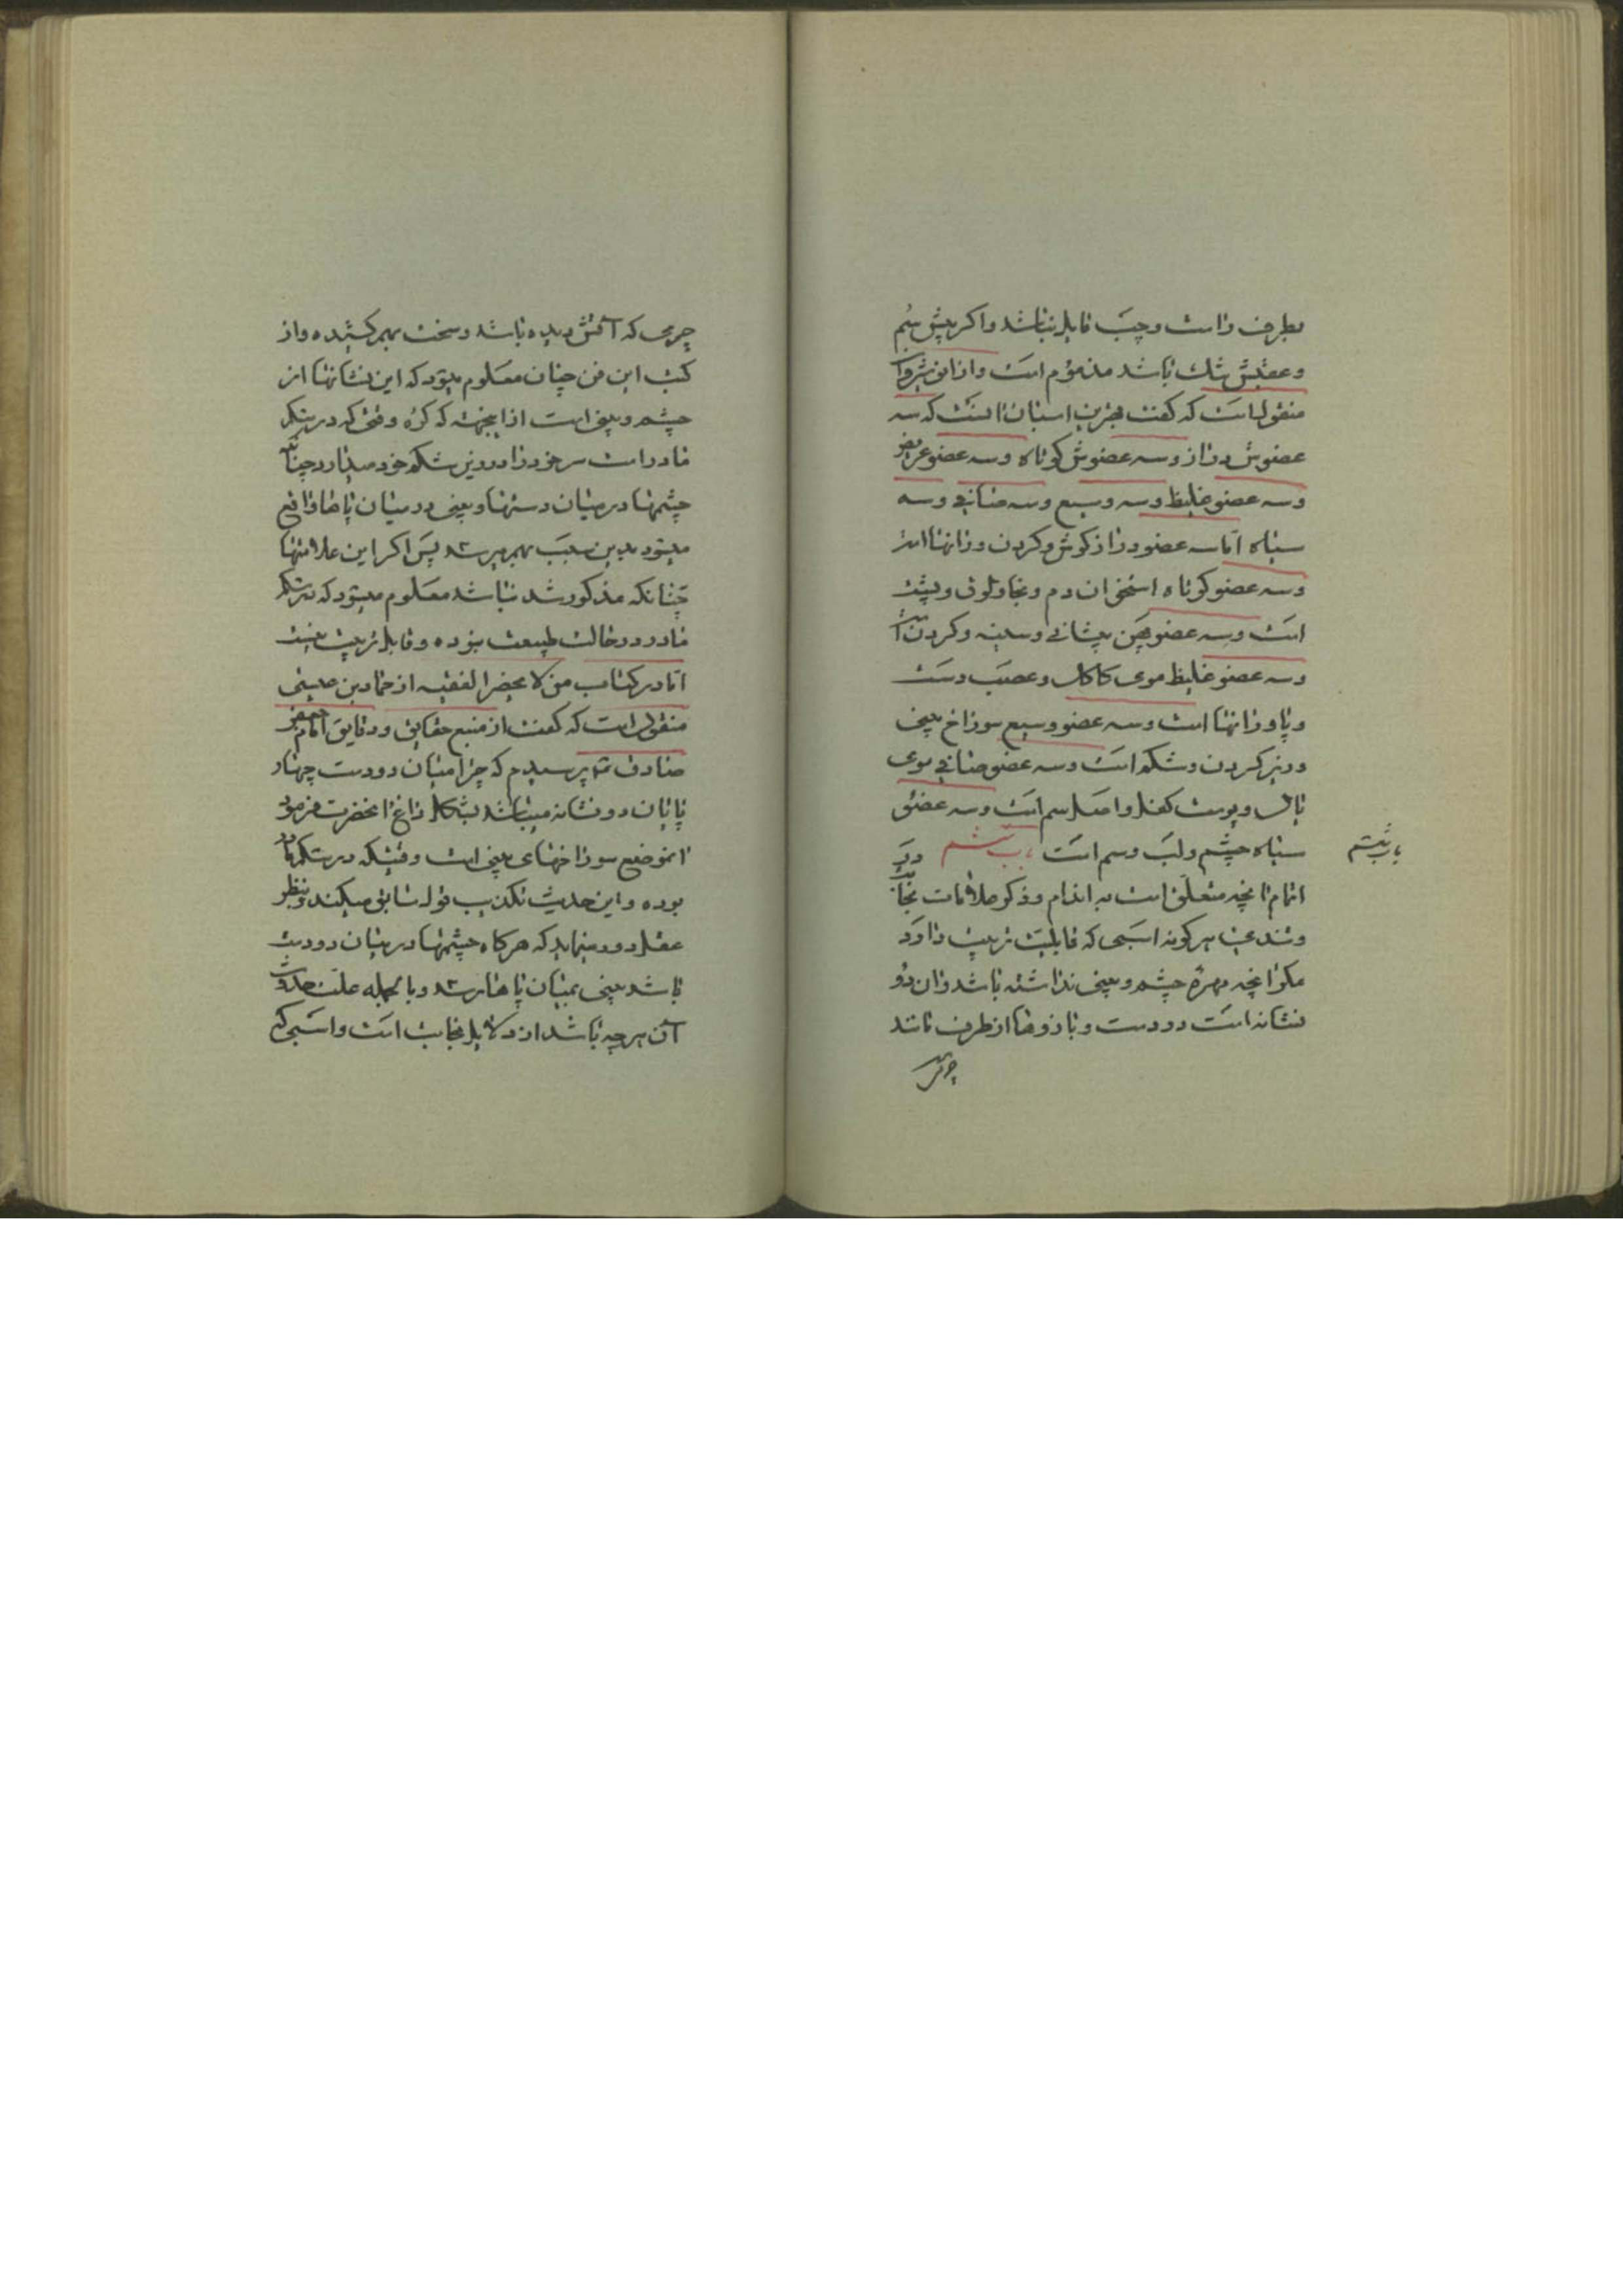 بطرف راست و چپ قابل نباشد و اکر پیش سُم
و عقبش تنك باشد مذموم است و از انوشیروان
منقولست که کفت بهترین اسبان انست که سه
عضوش دراز و سه عضوش کوتاه و سه عضو عریض
و سه عضو غلیظ و سه وسیع و سه صافی و سه
سیاه اما سه عضو دراز کوش و کردن و رانها است
و سه عضو کوتاه استخوان دم و و پشت
است و سه عضو پهن پیشانی و سینه و کردن است
و سه عضو غلیظ موی کاکل و عصب دست
و پا و رانها است و سه عضو وسیع سوراخ بینی
و زیر کردن و شکم است و سه عضو صافی موی
یال و پوست کفل و اصل سم است و سه عضو
سیاه چشم و لب و سم است باب ششم در
اتمام انچه متعلق است به اندام و ذکر علامات نجابت
و تندی هر کونه اسبی که قابلیت تربیت دارد
مکر انچه بهرهٔ چشم و بینی نداشته باشد و ان دو
نشانه است در دست و بازوها از طرف مانند
چرمی
باب ششم
چرمی که آتش دیده باشد و سخت بهم کشیده و از
کتب این فن چنان معلوم میشود که این نشانها از
چشم و بینی است از اینجهته که کرّه وقتی که در شکم
مادر است سر خود را در زیر شکم خود میدارد چنانکه
چشمها در میان دستها و بینی در میان پاها واقع
میشود بدین سبب بهم میرسد پس اکر این علامتها
چنانکه مذکور شد نباشد معلوم میشود که در شکم
مادر در حالت طبیعت نبوده و قابل تربیت نیست
اما در کتاب من لا یحضر الفقیه از حماد بن عیسی
منقول است که کفت از منبع حقایق و دقایق امام جعفر
صادق ع پرسیدم که چرا میان دو دست چهار
پایان دو نشانه میباشد بشکل داغ انحضرت فرمود
انموضع سوراخهای بینی است وقتیکه در شکم مادر
بوده و این حدیث تکذیب قول سابق میکند و بنظر
عقل دور مینماید که هرکاه چشمها در میان دو دست
باشد بینی بمیان پاها رسد و بالجمله علت حدوث
آن هرچه باشد از دلایل نجابت است و اسبی که